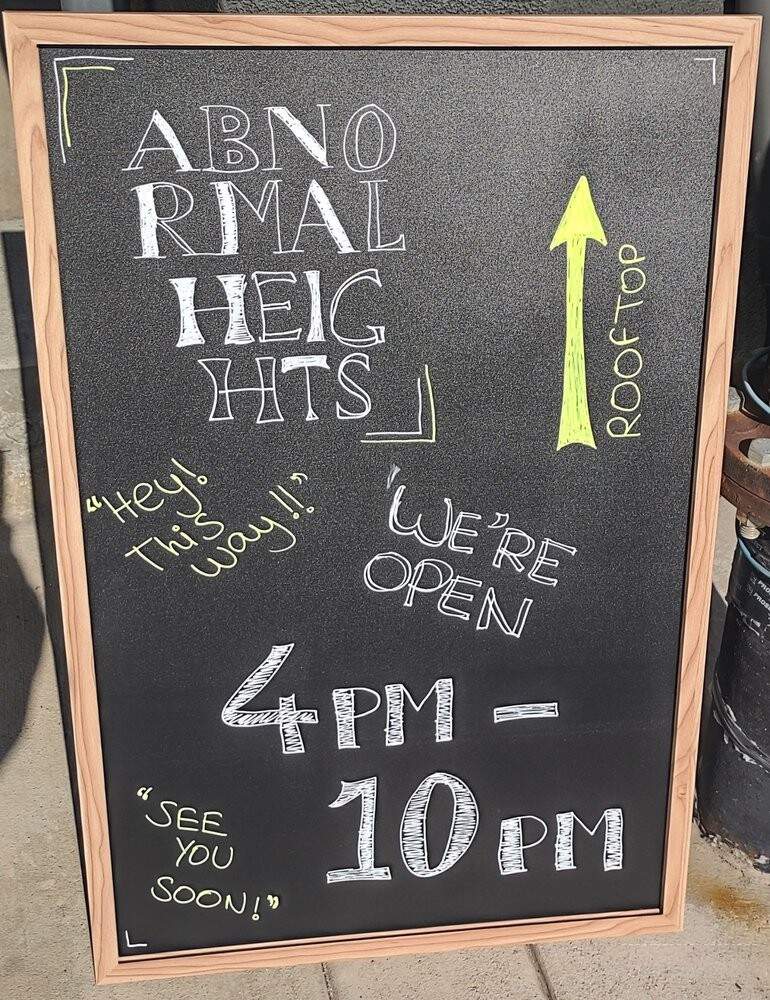 ABNO
RMAL
HEIG
HTS
ROOFTOP
"HEy!
THiS
way!!"
WE'RE
OPEN
4PM –
10PM
"SEE
YOU
SOON!"